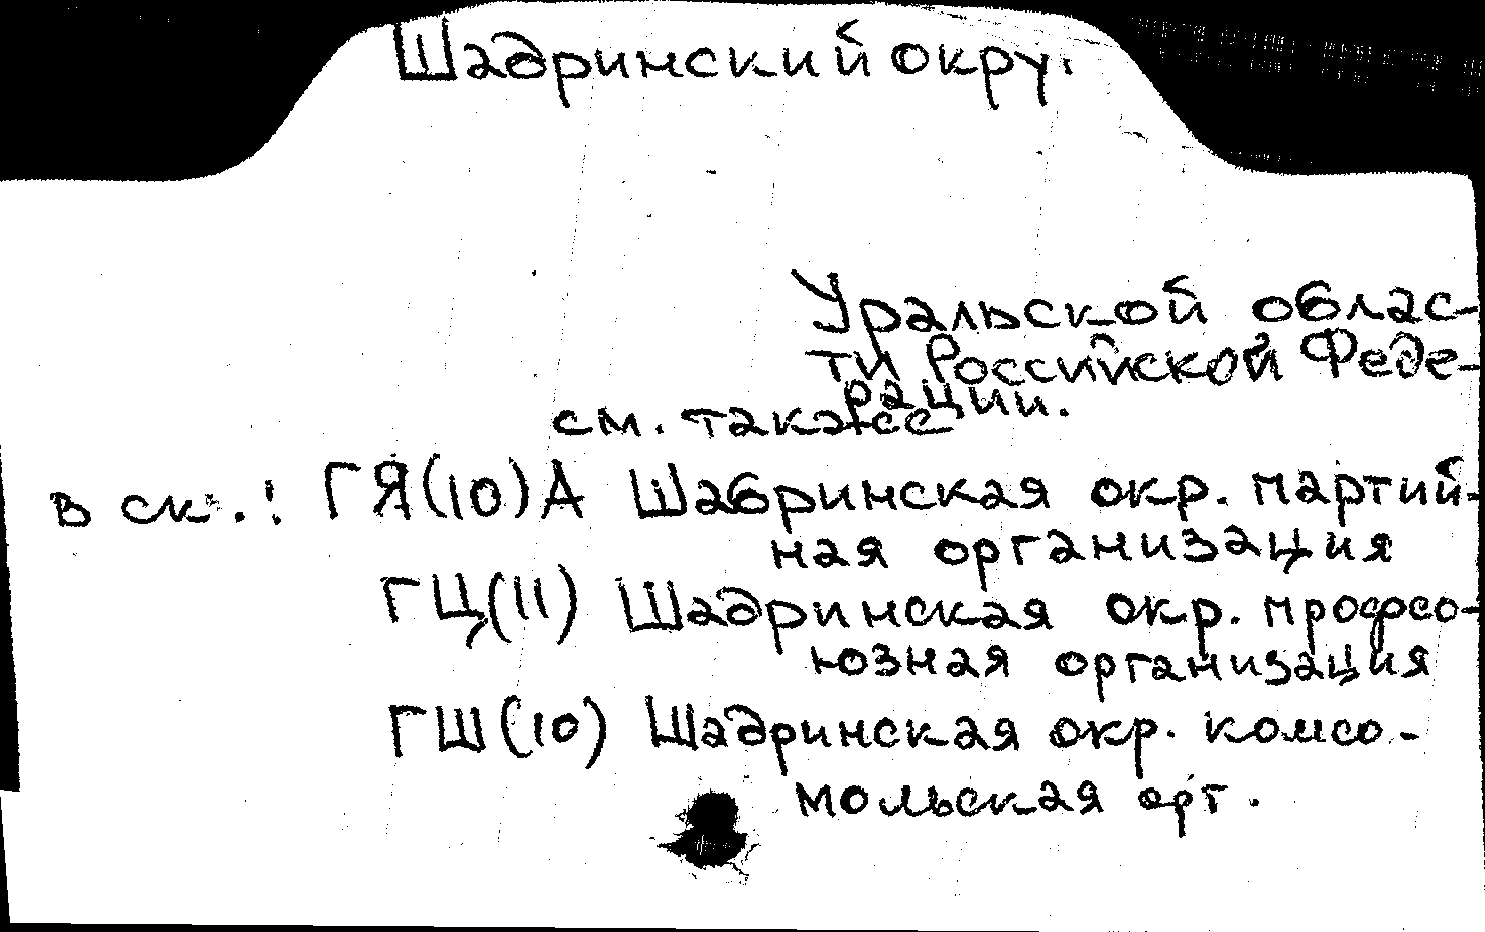 Шадринский окру.
Уральской облас-
ти Российской Феде-
рации.
см. также
в ск.: ГЯ(10)А Шадринская окр. партий-
ная организация
ГЦ(11) Шадринская окр. профсо-
юзная организация
ГШ(10) Шадринская окр. комсо-
мольская орг.